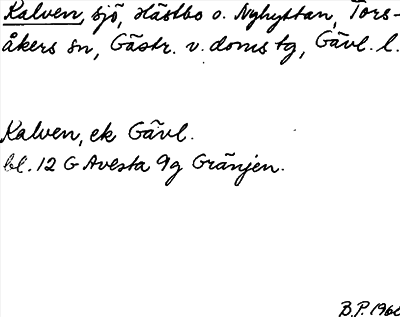 Kalven, sjö, Hästbo o. Nyhyttan, Tors-
åkers sn, Gästr. v. doms tg, Gävl. l.
Kalven, ek Gävl.
bl. 12 G Avesta 9g Gränjen.
B.P. 1966